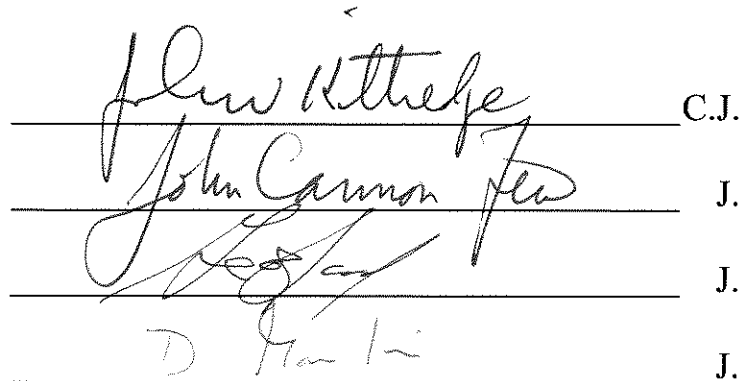 John Kittredge C.J.
John Cannon Few J.
J.
D J.